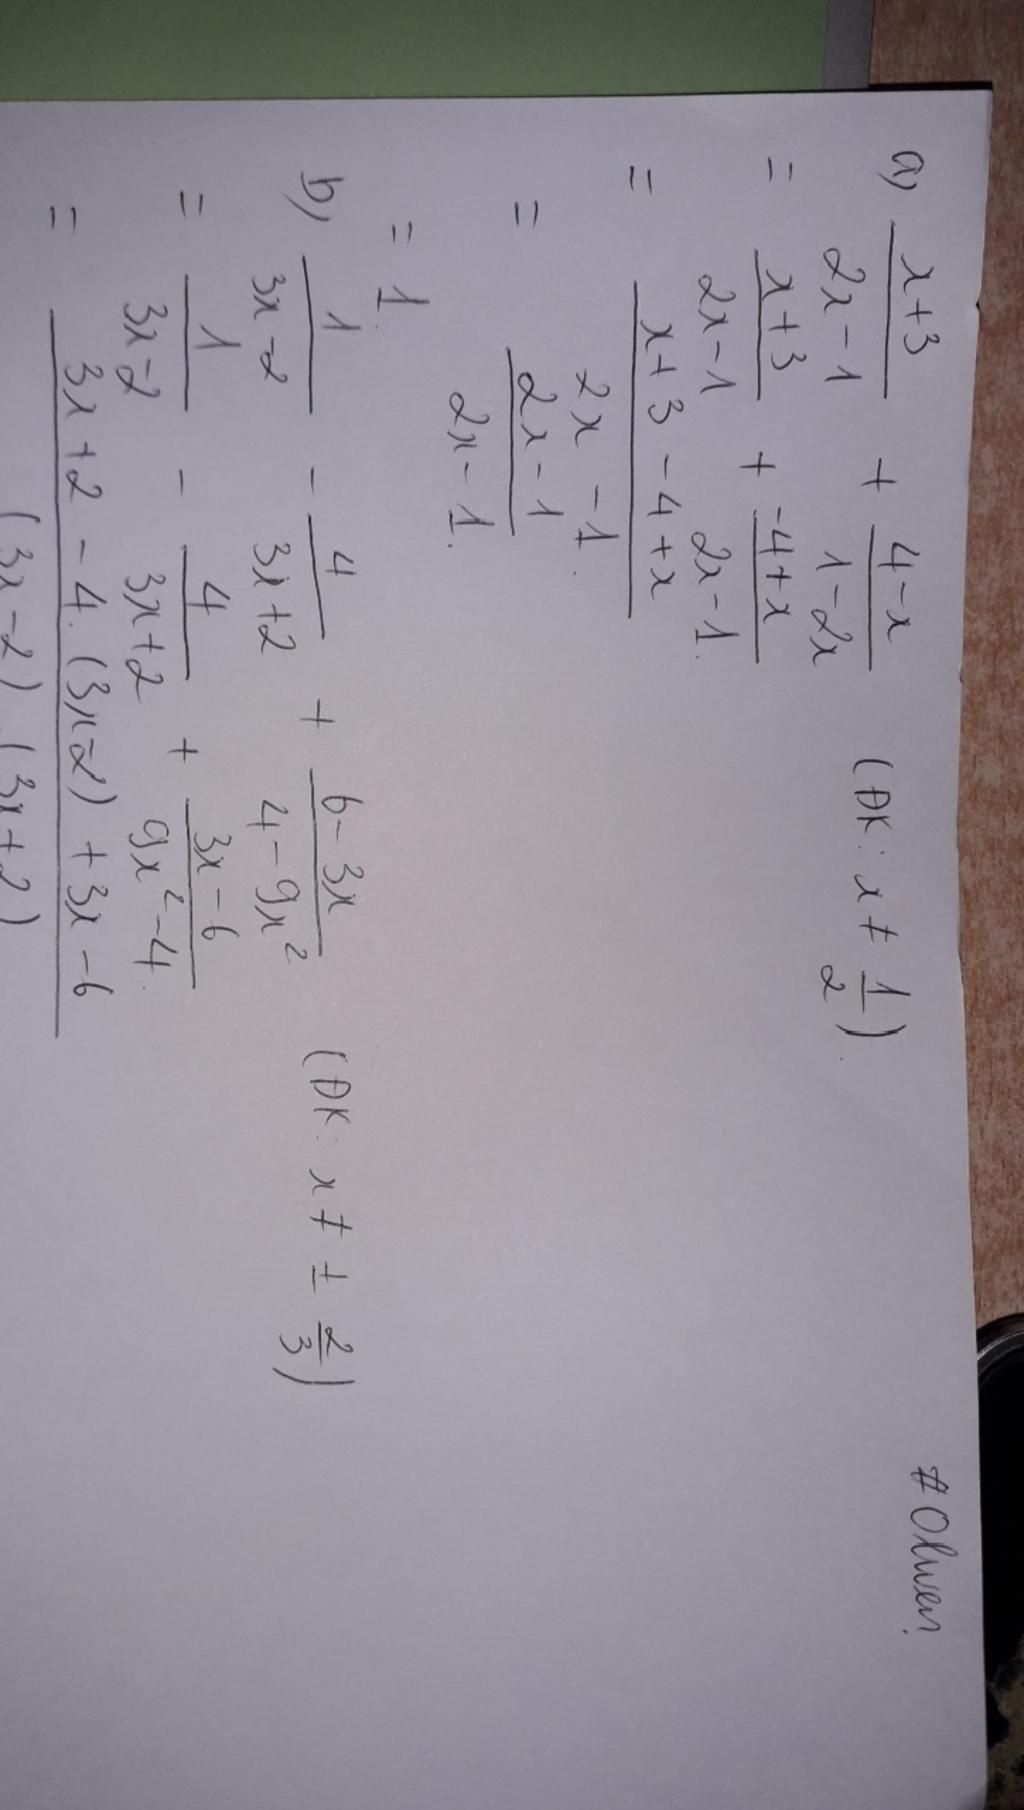 #Oliwen
a) \frac{x+3}{2x-1} + \frac{4-x}{1-2x} (ĐK: x ≠ \frac{1}{2}).
= \frac{x+3}{2x-1} + \frac{-4+x}{2x-1}.
= \frac{x+3-4+x}{2x-1}.
= \frac{2x-1}{2x-1}.
= 1.
b) \frac{1}{3x-2} - \frac{4}{3x+2} + \frac{6-3x}{4-9x^2} (ĐK: x ≠ ± \frac{2}{3})
= \frac{1}{3x-2} - \frac{4}{3x+2} + \frac{3x-6}{9x^2-4}.
= \frac{3x+2-4.(3x-2)+3x-6}{(3x-2).(3x+2)}